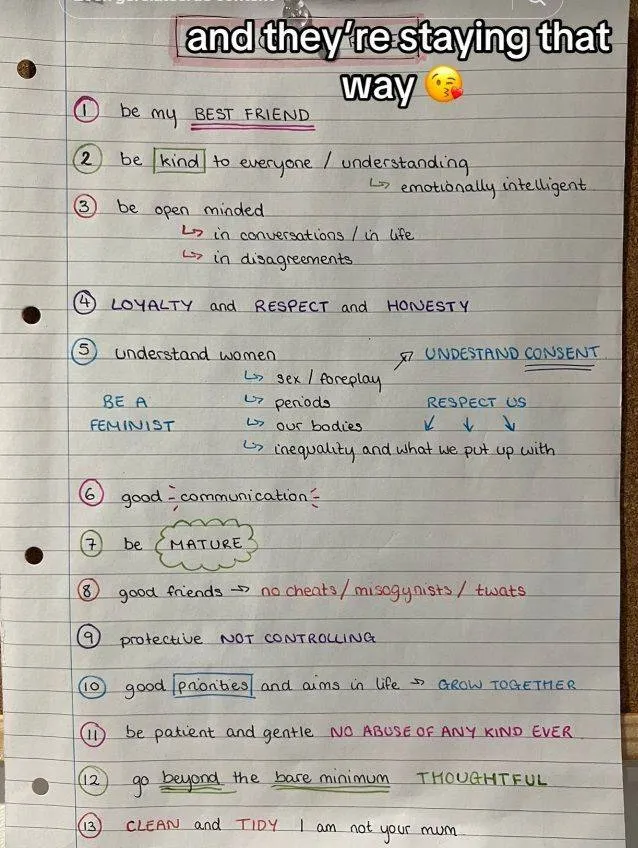 and they're staying that
way 😘
1 be my BEST FRIEND
2 be kind to everyone / understanding
↳ emotionally intelligent
3 be open minded
↳ in conversations / in life
↳ in disagreements
4 LOYALTY and RESPECT and HONESTY
5 understand women ↗ UNDESTAND CONSENT
↳ sex / foreplay
BE A ↳ periods RESPECT US
FEMINIST ↳ our bodies ↓ ↓ ↓
↳ inequality and what we put up with
6 good communication
7 be MATURE
8 good friends → no cheats / misogynists / twats
9 protective NOT CONTROLLING
10 good priorities and aims in life → GROW TOGETHER
11 be patient and gentle NO ABUSE OF ANY KIND EVER
12 go beyond the bare minimum THOUGHTFUL
13 CLEAN and TIDY I am not your mum